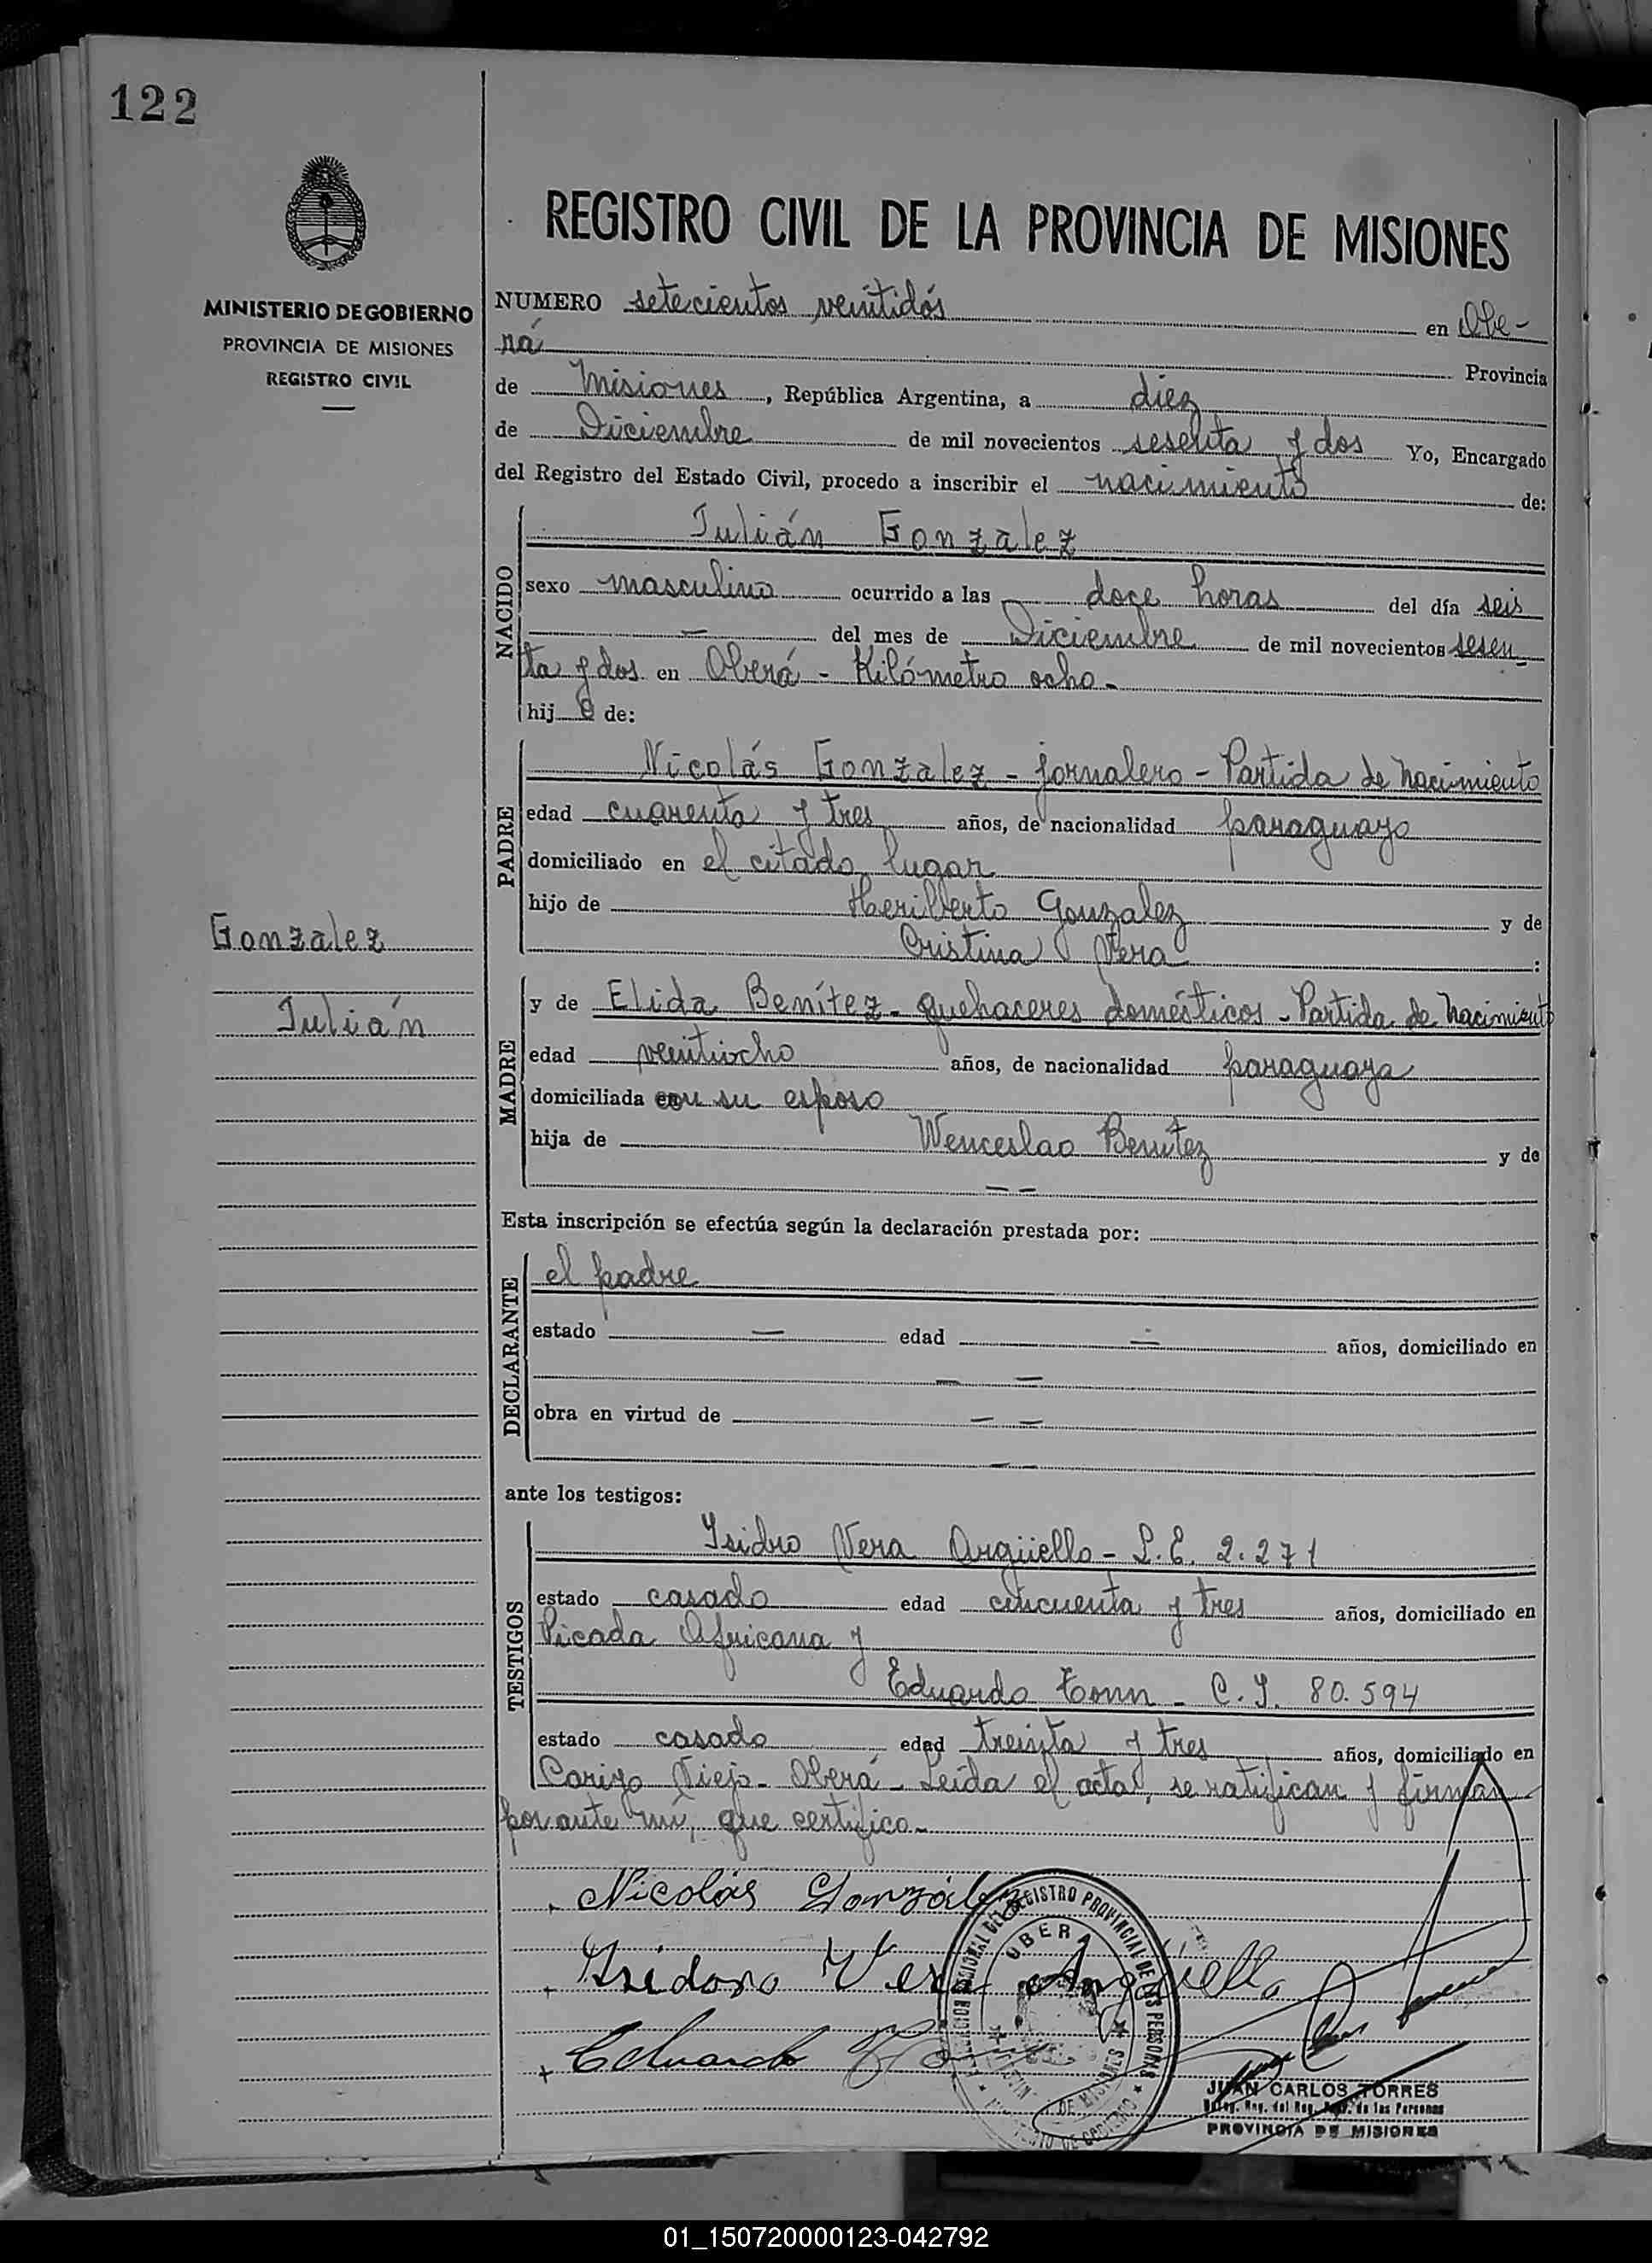 122
MINISTERIO DE GOBIERNO
PROVINCIA DE MISIONES
REGISTRO CIVIL
Gonzalez
Julián
REGISTRO CIVIL DE LA PROVINCIA DE MISIONES
NUMERO setecientos veintidós en Obe-
rá Provincia
de Misiones, República Argentina, a diez
de Diciembre de mil novecientos sesenta y dos Yo, Encargado
del Registro del Estado Civil, procedo a inscribir el nacimiento de:
NACIDO
Julián Gonzalez
sexo masculino ocurrido a las doce horas del día seis
— del mes de Diciembre de mil novecientos sesen-
ta y dos en Oberá - Kilómetro ocho -
hijo de:
PADRE
Nicolás Gonzalez - jornalero - Partida de nacimiento
edad cuarenta y tres años, de nacionalidad paraguayo
domiciliado en el citado lugar
hijo de Heriberto Gonzalez y de
Cristina Vera :
MADRE
y de Elida Benítez - quehaceres domésticos - Partida de nacimiento
edad veintiocho años, de nacionalidad paraguaya
domiciliada con su esposo
hija de Wenceslao Benítez y de
— —
Esta inscripción se efectúa según la declaración prestada por:
DECLARANTE
el padre
estado — edad — años, domiciliado en
— —
obra en virtud de — —
— —
ante los testigos:
TESTIGOS
Isidro Vera Argüello - L.E. 2.271
estado casado edad cincuenta y tres años, domiciliado en
Picada Africana y
Eduardo Tonn - C.I. 80.594
estado casado edad treinta y tres años, domiciliado en
Viejo - Oberá - Leída el acta, se ratifican y firman
por ante mí, que certifico.-
Nicolás González
Isidoro Vera Argüello
Eduardo
REGISTRO PROVINCIAL DE LAS PERSONAS
OBERA
DE MISIONES
JUAN CARLOS TORRES
Deleg. Reg. del Reg. Prov. de las Personas
PROVINCIA DE MISIONES
01_150720000123-042792